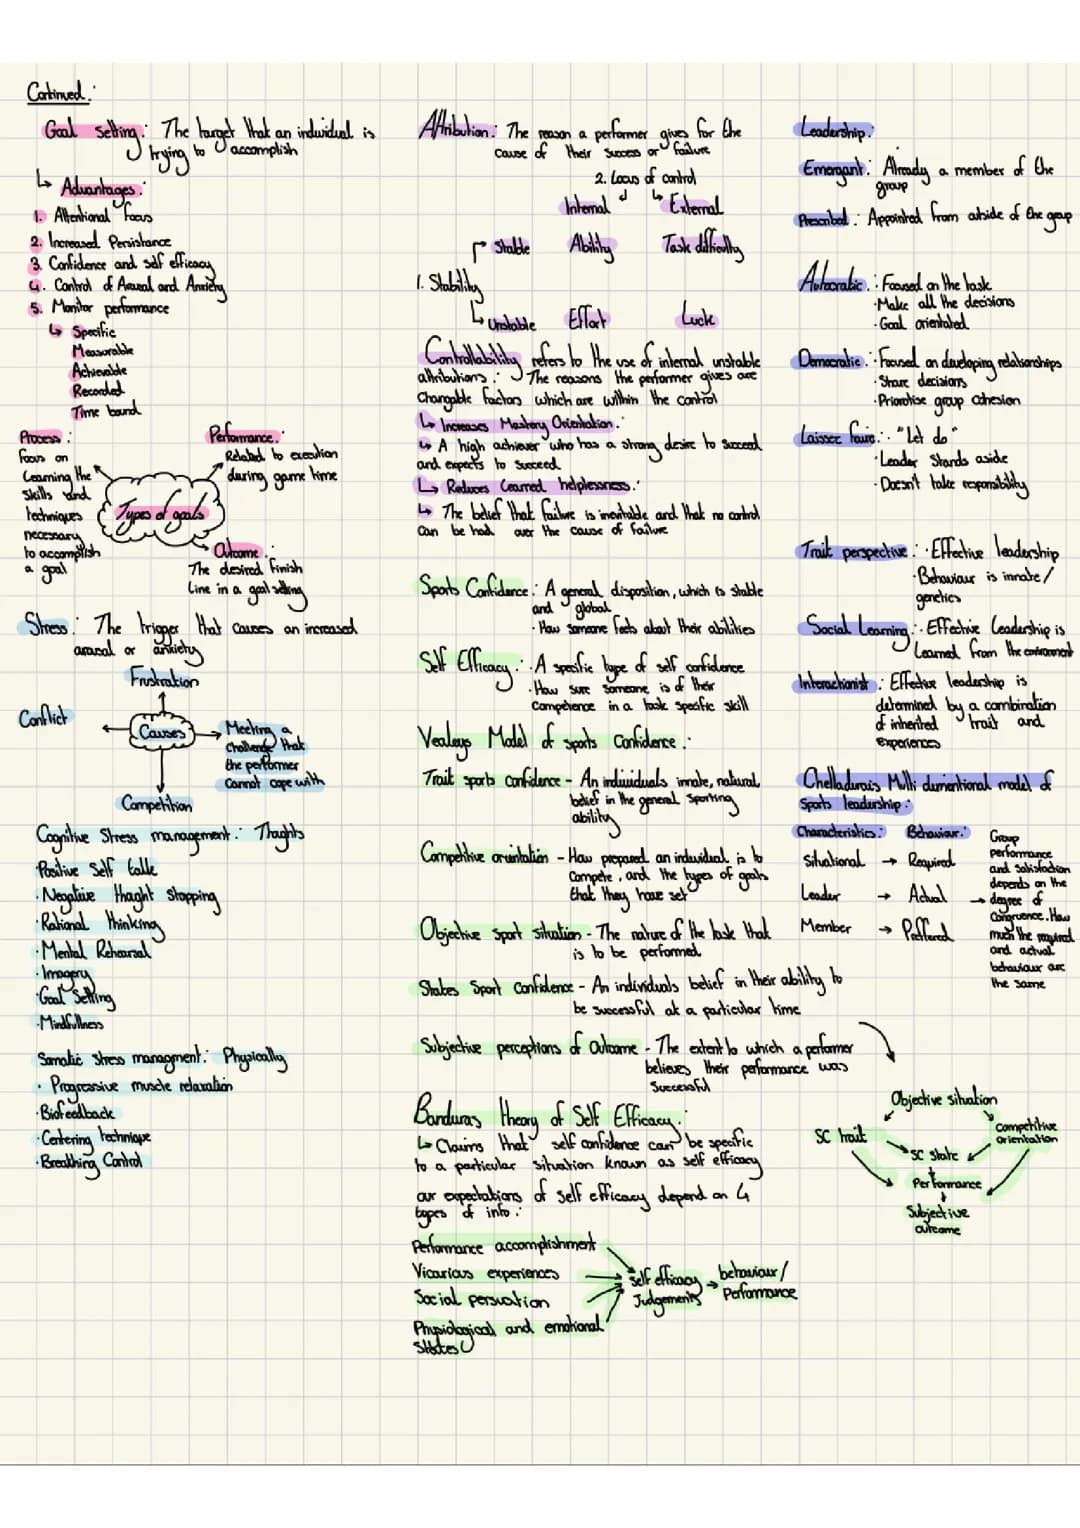 Continued:
Goal setting: The target that an individual is
trying to accomplish
↳ Advantages:
1. Attentional focus
2. Increased Persistance
3. Confidence and self efficacy
4. Control of Arousal and Anxiety
5. Monitor performance
↳ Specific
Measurable
Achievable
Recorded
Time bound
Process:
Focus on
Learning the
Skills and
techniques
necessary
to accomplish
a goal
Performance:
Related to execution
during game time
Types of goals
Outcome:
The desired finish
line in a goal setting
Stress: The trigger that causes an increased
arousal or anxiety
Frustration
Conflict
Causes
Meeting a
challenge that
the performer
cannot cope with
Competition
Cognitive Stress management: Thoughts
·Positive Self talk
·Negative thaught Stopping
·Rational thinking
·Mental Rehearsal
·Imagery
·Goal Setting
·Mindfullness
Somatic stress managment: Physically
· Progressive muscle relaxation
·Biofeedback
·Centering technique
·Breathing Control
Attribution: The reason a performer gives for the
cause of their success or failure
2. Locus of control
Internal External
Stable Ability Task difficulty
1. Stability
Unstable Effort Luck
Controllability refers to the use of internal unstable
attributions: The reasons the performer gives are
Changable factors which are within the control
↳ Increases Mastery Orientation:
↳ A high achiever who has a strong desire to succeed
and expects to succeed
↳ Reduces Learned helplessness:
↳ The belief that failure is inevitable and that no control
can be had over the cause of failure
Sports Confidence: A general disposition, which is stable
and global
· How someone feels about their abilities
Self Efficacy: ·A specific type of self confidence
·How sure someone is of their
competence in a task specific skill
Vealeys Model of sports Confidence:
Trait sports confidence - An individuals innate, natural
belief in the general sporting
ability
Competitive orientation - How prepared an individual is to
compete, and the types of goals
that they have set
Objective sport situation - The nature of the task that
is to be performed
States Sport Confidence - An individuals belief in their ability to
be successful at a particular time
Subjective perceptions of Outcome - The extent to which a performer
believes their performance was
successful
Banduras theory of Self Efficacy:
↳ Claims that self confidence can be specific
to a particular situation known as self efficacy
our expectations of self efficacy depend on 4
types of info:
Performance accomplishment
Vicarious experiences
Social persuation
Physiological and emotional
States
self efficacy
Judgements
behaviour/
Performance
Leadership:
Emergant: Already a member of the
group
Prescribed: Appointed from outside of the group
Autocratic: · Focused on the task
·Make all the decisions
·Goal orientated
Democratic: ·Focused on developing relationships
·Share decisions
·Prioratise group cohesion
Laissez faire: · "Let do"
·Leader Stands aside
·Doesn't take responsibility
Trait perspective: ·Effective leadership
·Behaviour is innate/
genetics
Social Learning: ·Effective Leadership is
Learned from the environment
Interactionist: Effective leadership is
determined by a combination
of inherited trait and
experiences
Chelladurais Multi dimentional model of
Sports leadership:
Characteristics: Behaviour:
Situational → Required
Leader → Actual
Member → Preffered
Group
performance
and satisfaction
depends on the
→ degree of
Congruence. How
much the required
and actual
behaviour are
the same
Objective situation
SC trait
competitive
orientation
SC state
Performance
Subjective
outcome